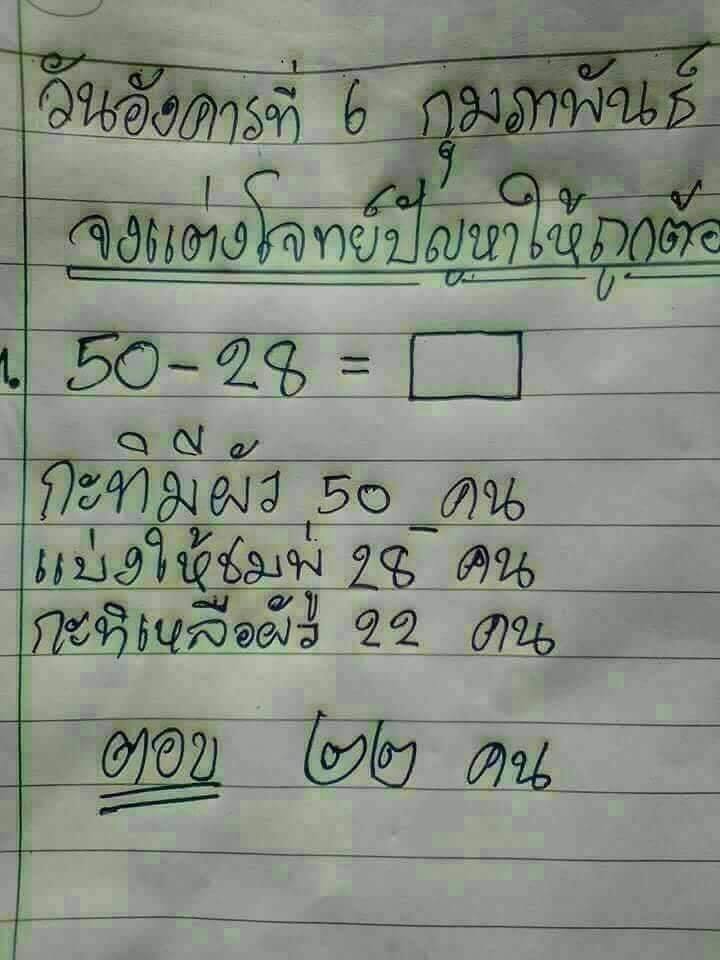 วันอังคารที่ 6 กุมภาพันธ์
จงแต่งโจทย์ปัญหาให้ถูกต้อ
1. 50 - 28 =
กะทิมีผัว 50 คน
แบ่งให้ชมพู่ 28 คน
กะทิเหลือผัว 22 คน
ตอบ ๒๒ คน